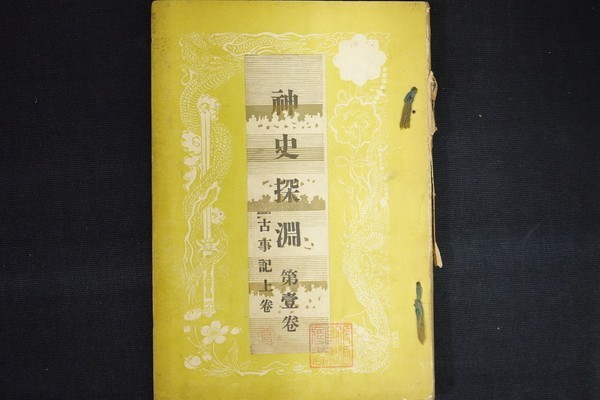 神史探淵 第壹卷
古事記上卷